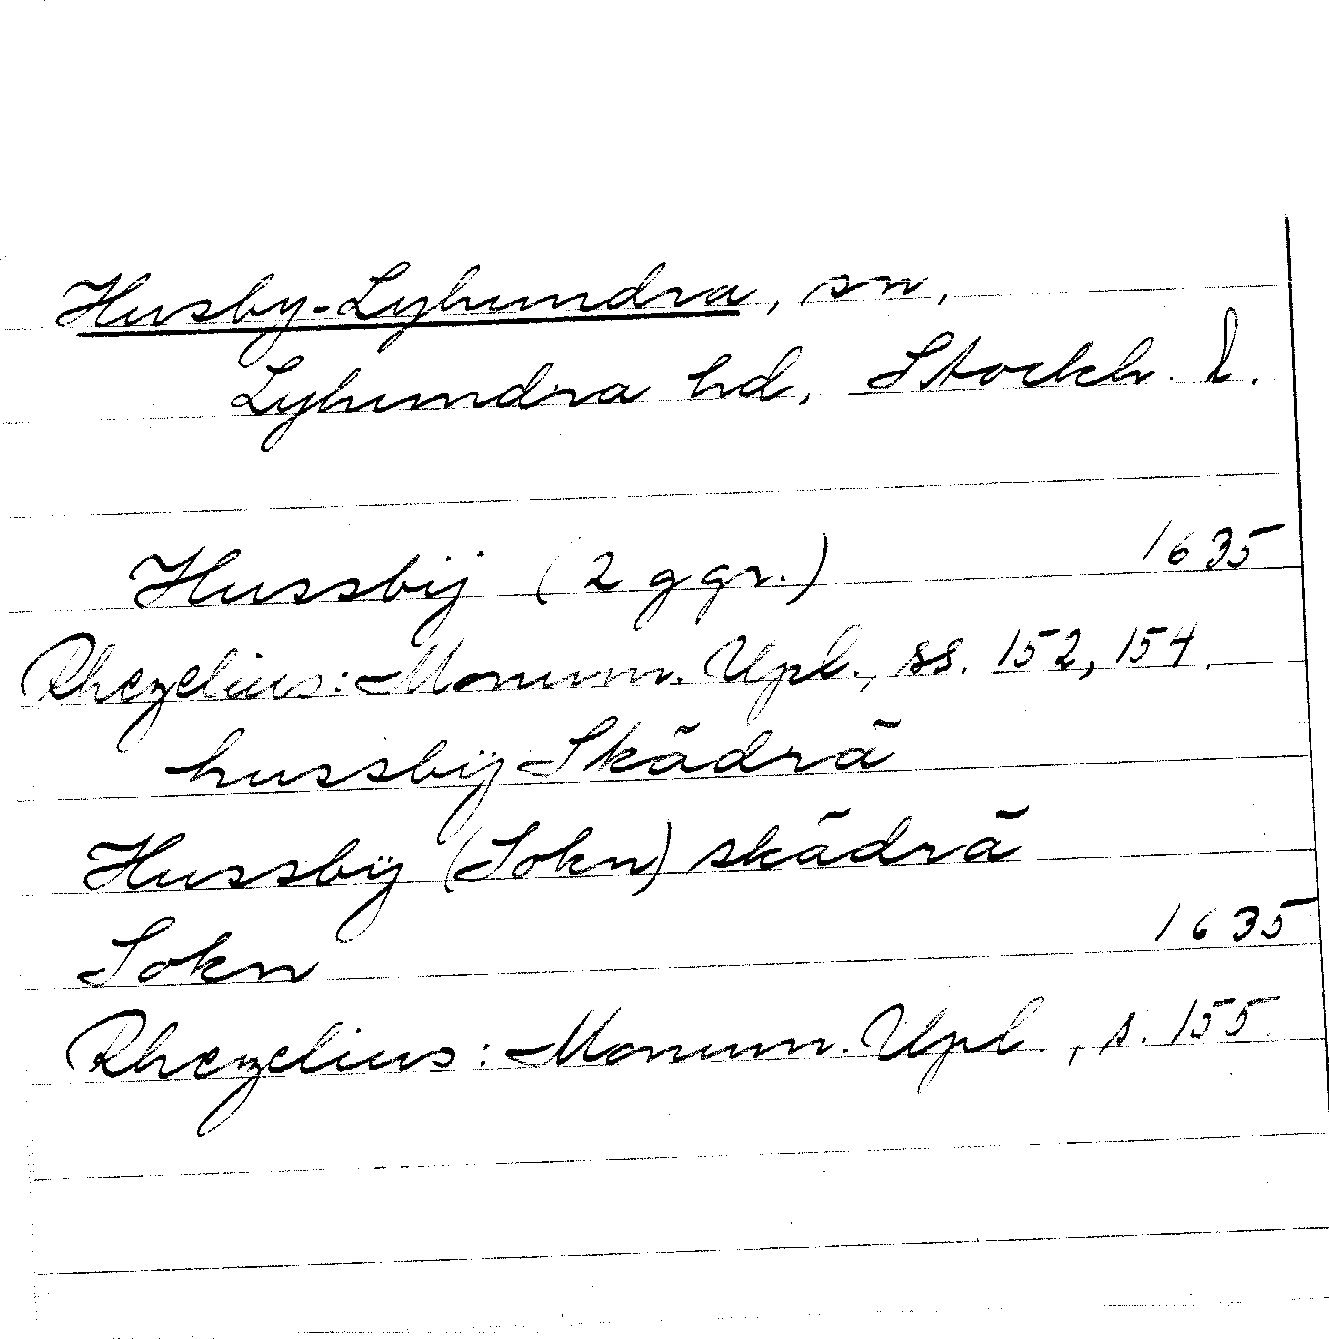 Husby-Lyhundra, sn,
Lyhundra hd, Stockh. l.
Hussbÿ (2 ggr.) 1635
Rhezelius: Monum. Upl., ss. 152, 154.
hussbÿ Skādrā
Hussbÿ (Sokn) skādrā
Sokn 1635
Rhezelius: Monum. Upl., s. 155.